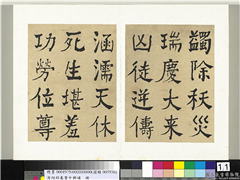 蠲除祅災
瑞慶大来
凶徒逆儔
涵濡天休
死生堪羞
功勞位尊
11